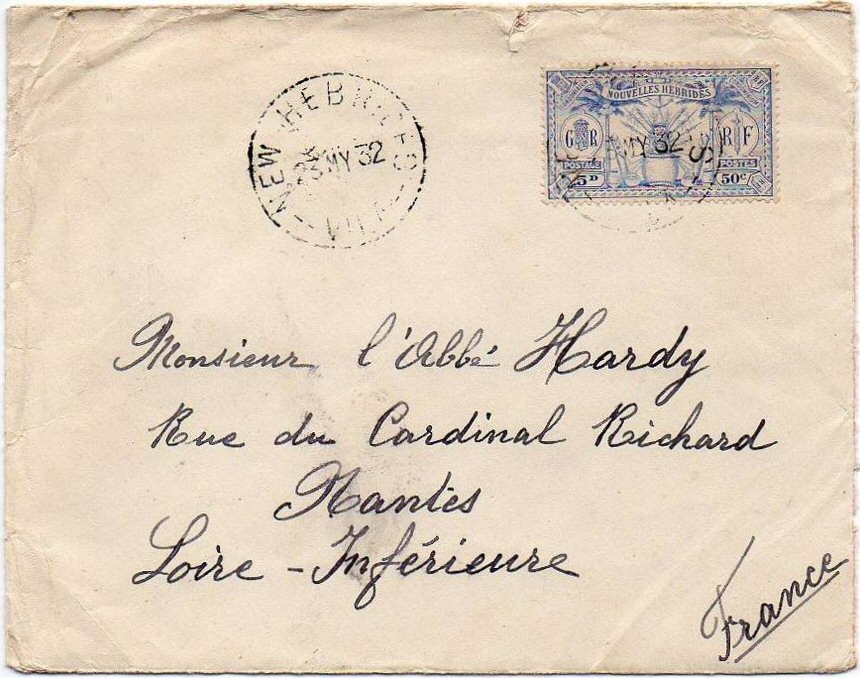 NEW HEBRIDES
MY 32
VILA
NOUVELLES HEBRIDES
G R
R F
POSTAGE
POSTES
5D
50c
MY 32
Monsieur l'Abbé Hardy
Rue du Cardinal Richard
Nantes
Loire - Inférieure
France